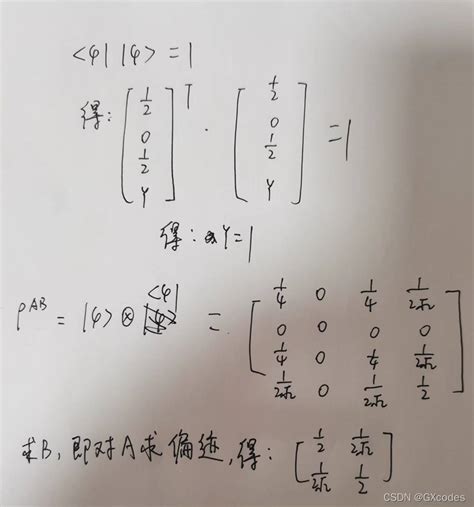 <φ| |φ> = 1
得: [1/2 0 1/2 γ]^T · [1/2 0 1/2 γ] = 1
得: γ=1
ρ^AB = |φ> ⊗ <φ| = [1/4 0 1/4 1/2√2
0 0 0 0
1/4 0 1/4 1/2√2
1/2√2 0 1/2√2 1/2]
求B, 即对A求偏迹, 得: [1/2 1/2√2
1/2√2 1/2]
CSDN @GXcodes